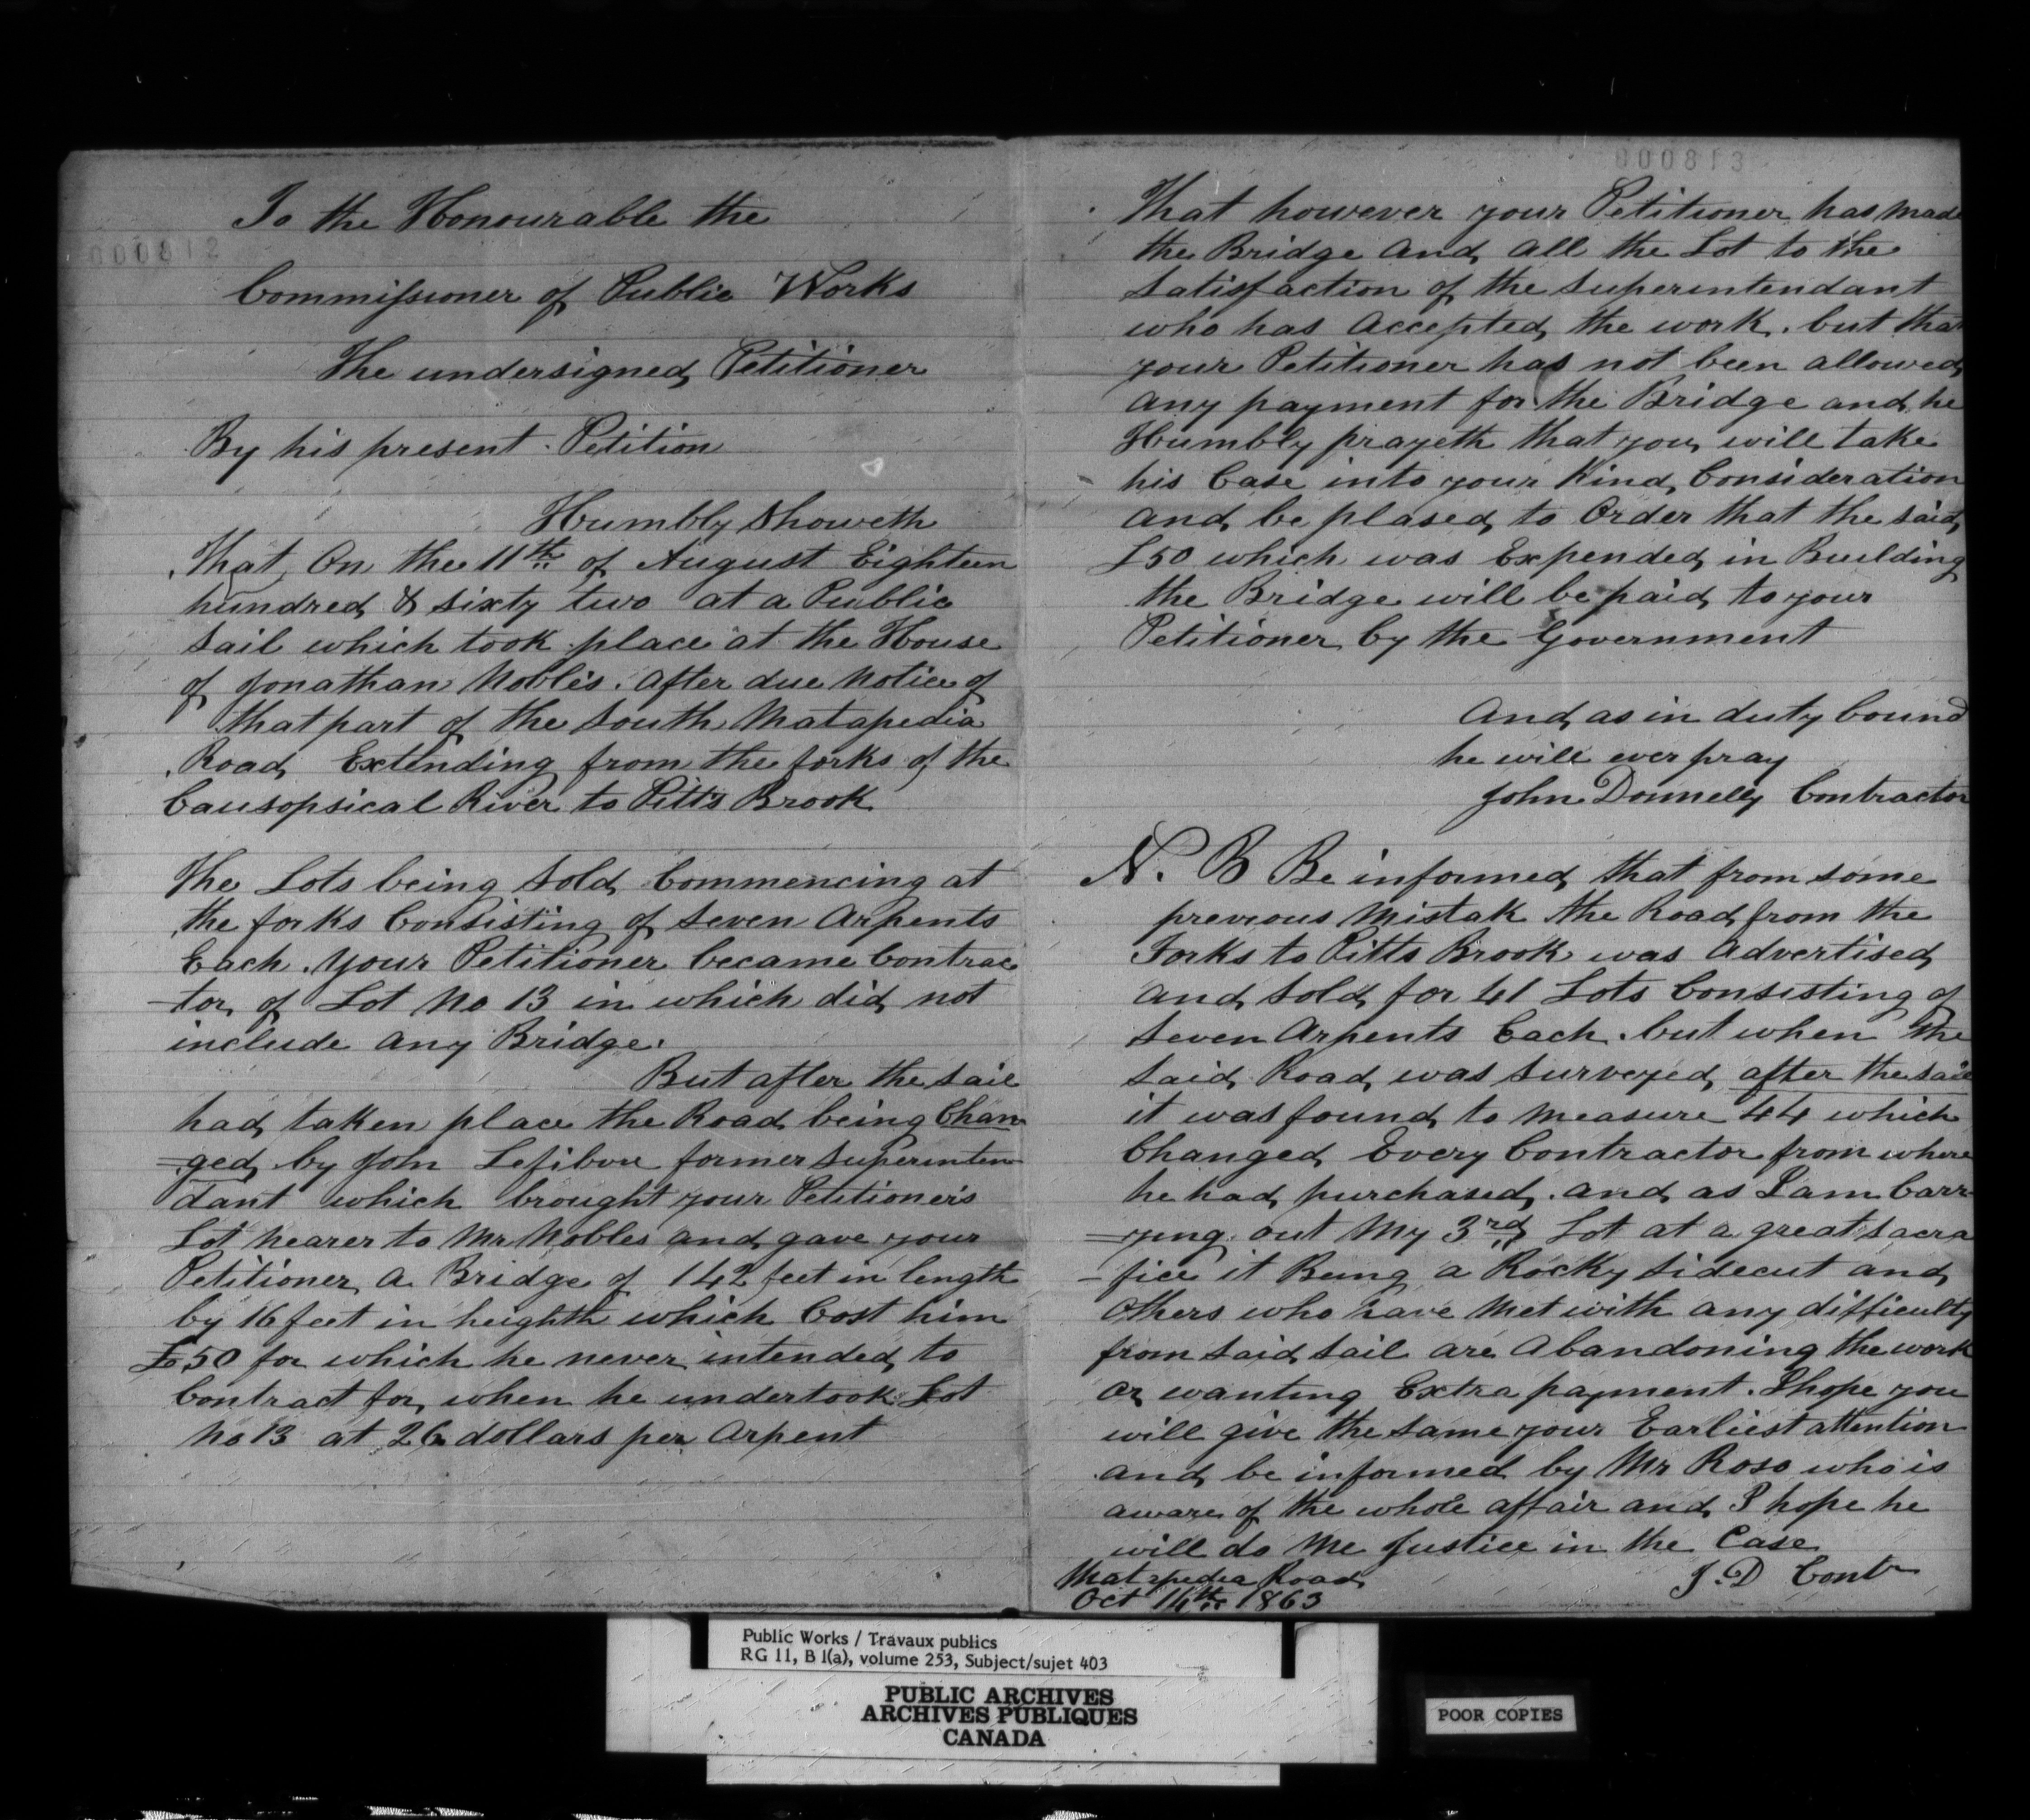 000812
To the Honourable the
Commissioner of Public Works
The undersigned Petitioner
By his present Petition
Humbly Showeth
That On the 11th of August Eighteen
hundred & sixty two at a Public
Sail which took place at the House
of Jonathan Nobles. After due Notice of
that part of the South Matapedia
Road Extending from the forks of the
Causopsical River to Pitts Brook
The Lots being Sold Commencing at
the forks Consisting of Seven Arpents
Each. Your Petitioner became Contrac
-tor of Lot No 13 in which did not
include any Bridge.
But after the Sail
had taken place the Road being Chan
=ged by John Lefibvre former Superinten
dant which brought your Petitioner's
Lot nearer to Mr Nobles and gave your
Petitioner a Bridge of 142 feet in length
by 16 feet in heighth which Cost him
£50 for which he never intended to
Contract for, when he undertook Lot
No 13 at 26 dollars per Arpent
000813
That however your Petitioner has made
the Bridge and all the Lot to the
Satisfaction of the Superintendant
who has Accepted the work. but that
your Petitioner has not been allowed
any payment for the Bridge and he
Humbly prayeth that you will take
his Case into your Kind Consideration
and be plased to Order that the said
£50 which was Expended in Building
the Bridge will be paid to your
Petitioner by the Government
And as in duty bound
he will ever pray
John Donnelly Contractor
N. B Be informed that from some
previous Mistak the Road from the
Forks to Pitts Brook was Advertised
and Sold for 41 Lots Consisting of
Seven Arpents Each. but when the
Said Road was Surveyed after the sail
it was found to measure 44 which
Changed Every Contractor from where
he had purchased. and as I am Carr
=ying out My 3rd Lot at a great sacra
-fice it Being a Rocky Sidecut and
Others who have Met with any difficulty
from Said Sail are Abandoning the work
or wanting Extra payment. I hope you
will give the same your Earliest attention
and be informed by Mr Ross who is
aware of the whole affair and I hope he
will do Me Justice in the Case
J. D Contr
Matapedia Road
Oct 14th 1863
Public Works / Travaux publics
RG 11, B 1(a), volume 253, Subject/sujet 403
PUBLIC ARCHIVES
ARCHIVES PUBLIQUES
CANADA
POOR COPIES